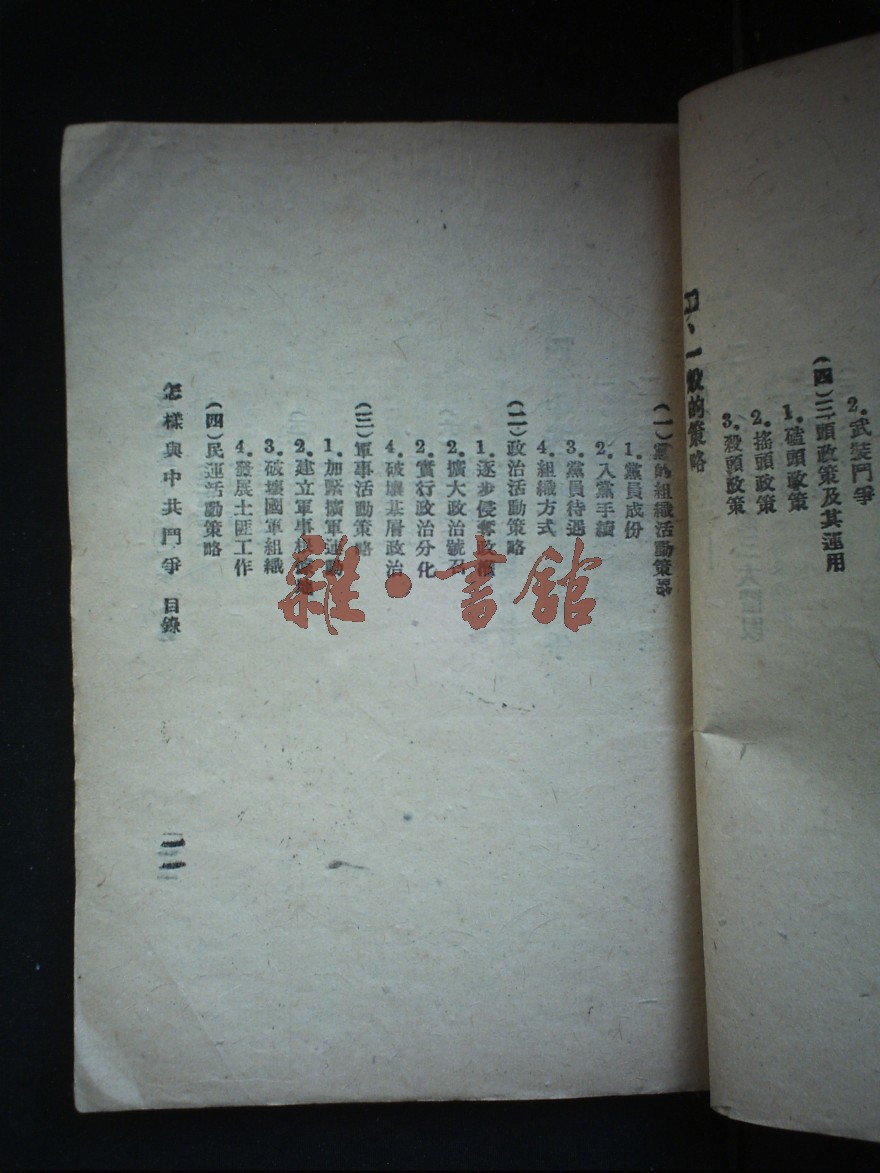 2.武裝鬥爭
(四)三頭政策及其運用
1.磕頭政策
2.搖頭政策
3.殺頭政策
、一般的策略
(一)黨的組織活動策畧
1.黨員成份
2.入黨手續
3.黨員待遇
4.組織方式
(二)政治活動策略
1.逐步侵奪政權
2.擴大政治號召
2.實行政治分化
4.破壞基層政治
(三)軍事活動策略
1.加緊擴軍運動
2.建立軍事根據地
3.破壞國軍組織
4.發展土匪工作
(四)民運活動策略
怎樣與中共鬥爭 目錄
二
雜·書館